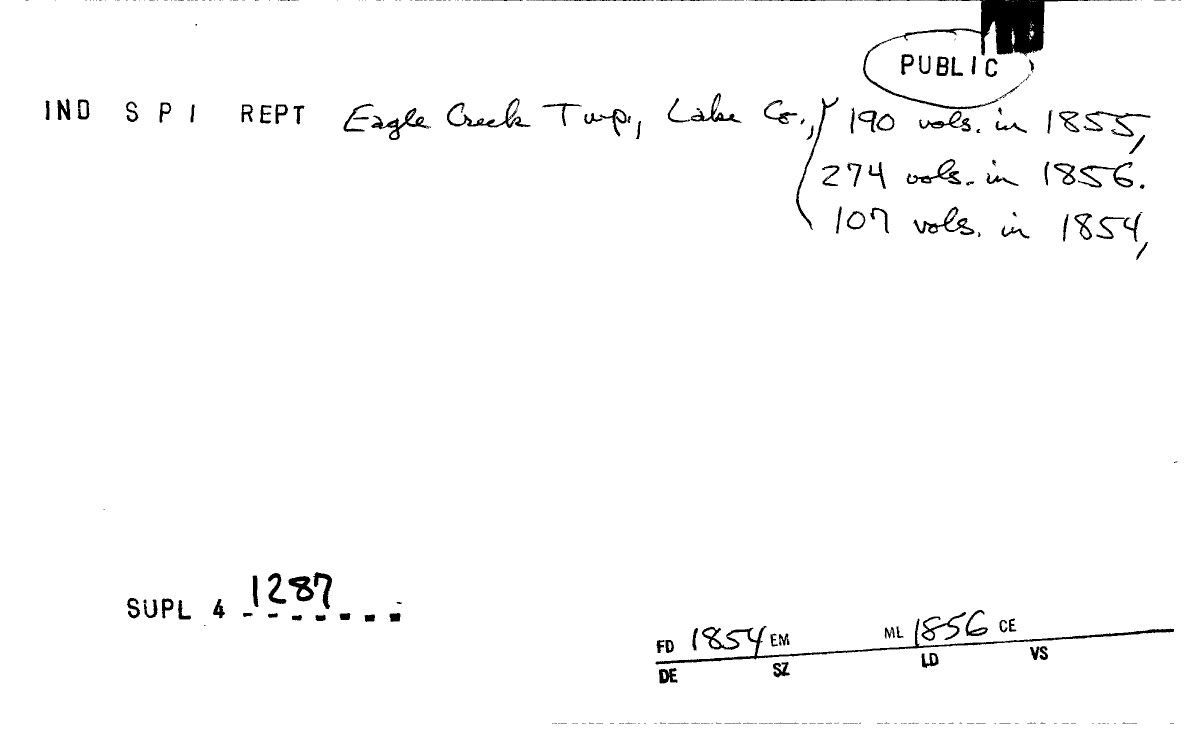 PUBLIC
IND S P I REPT Eagle Creek Twp., Lake Co., 190 vols. in 1855,
274 vols. in 1856.
107 vols. in 1854,
SUPL 4 1287
FD 1854 EM ML 1856 CE
DE SZ LD VS